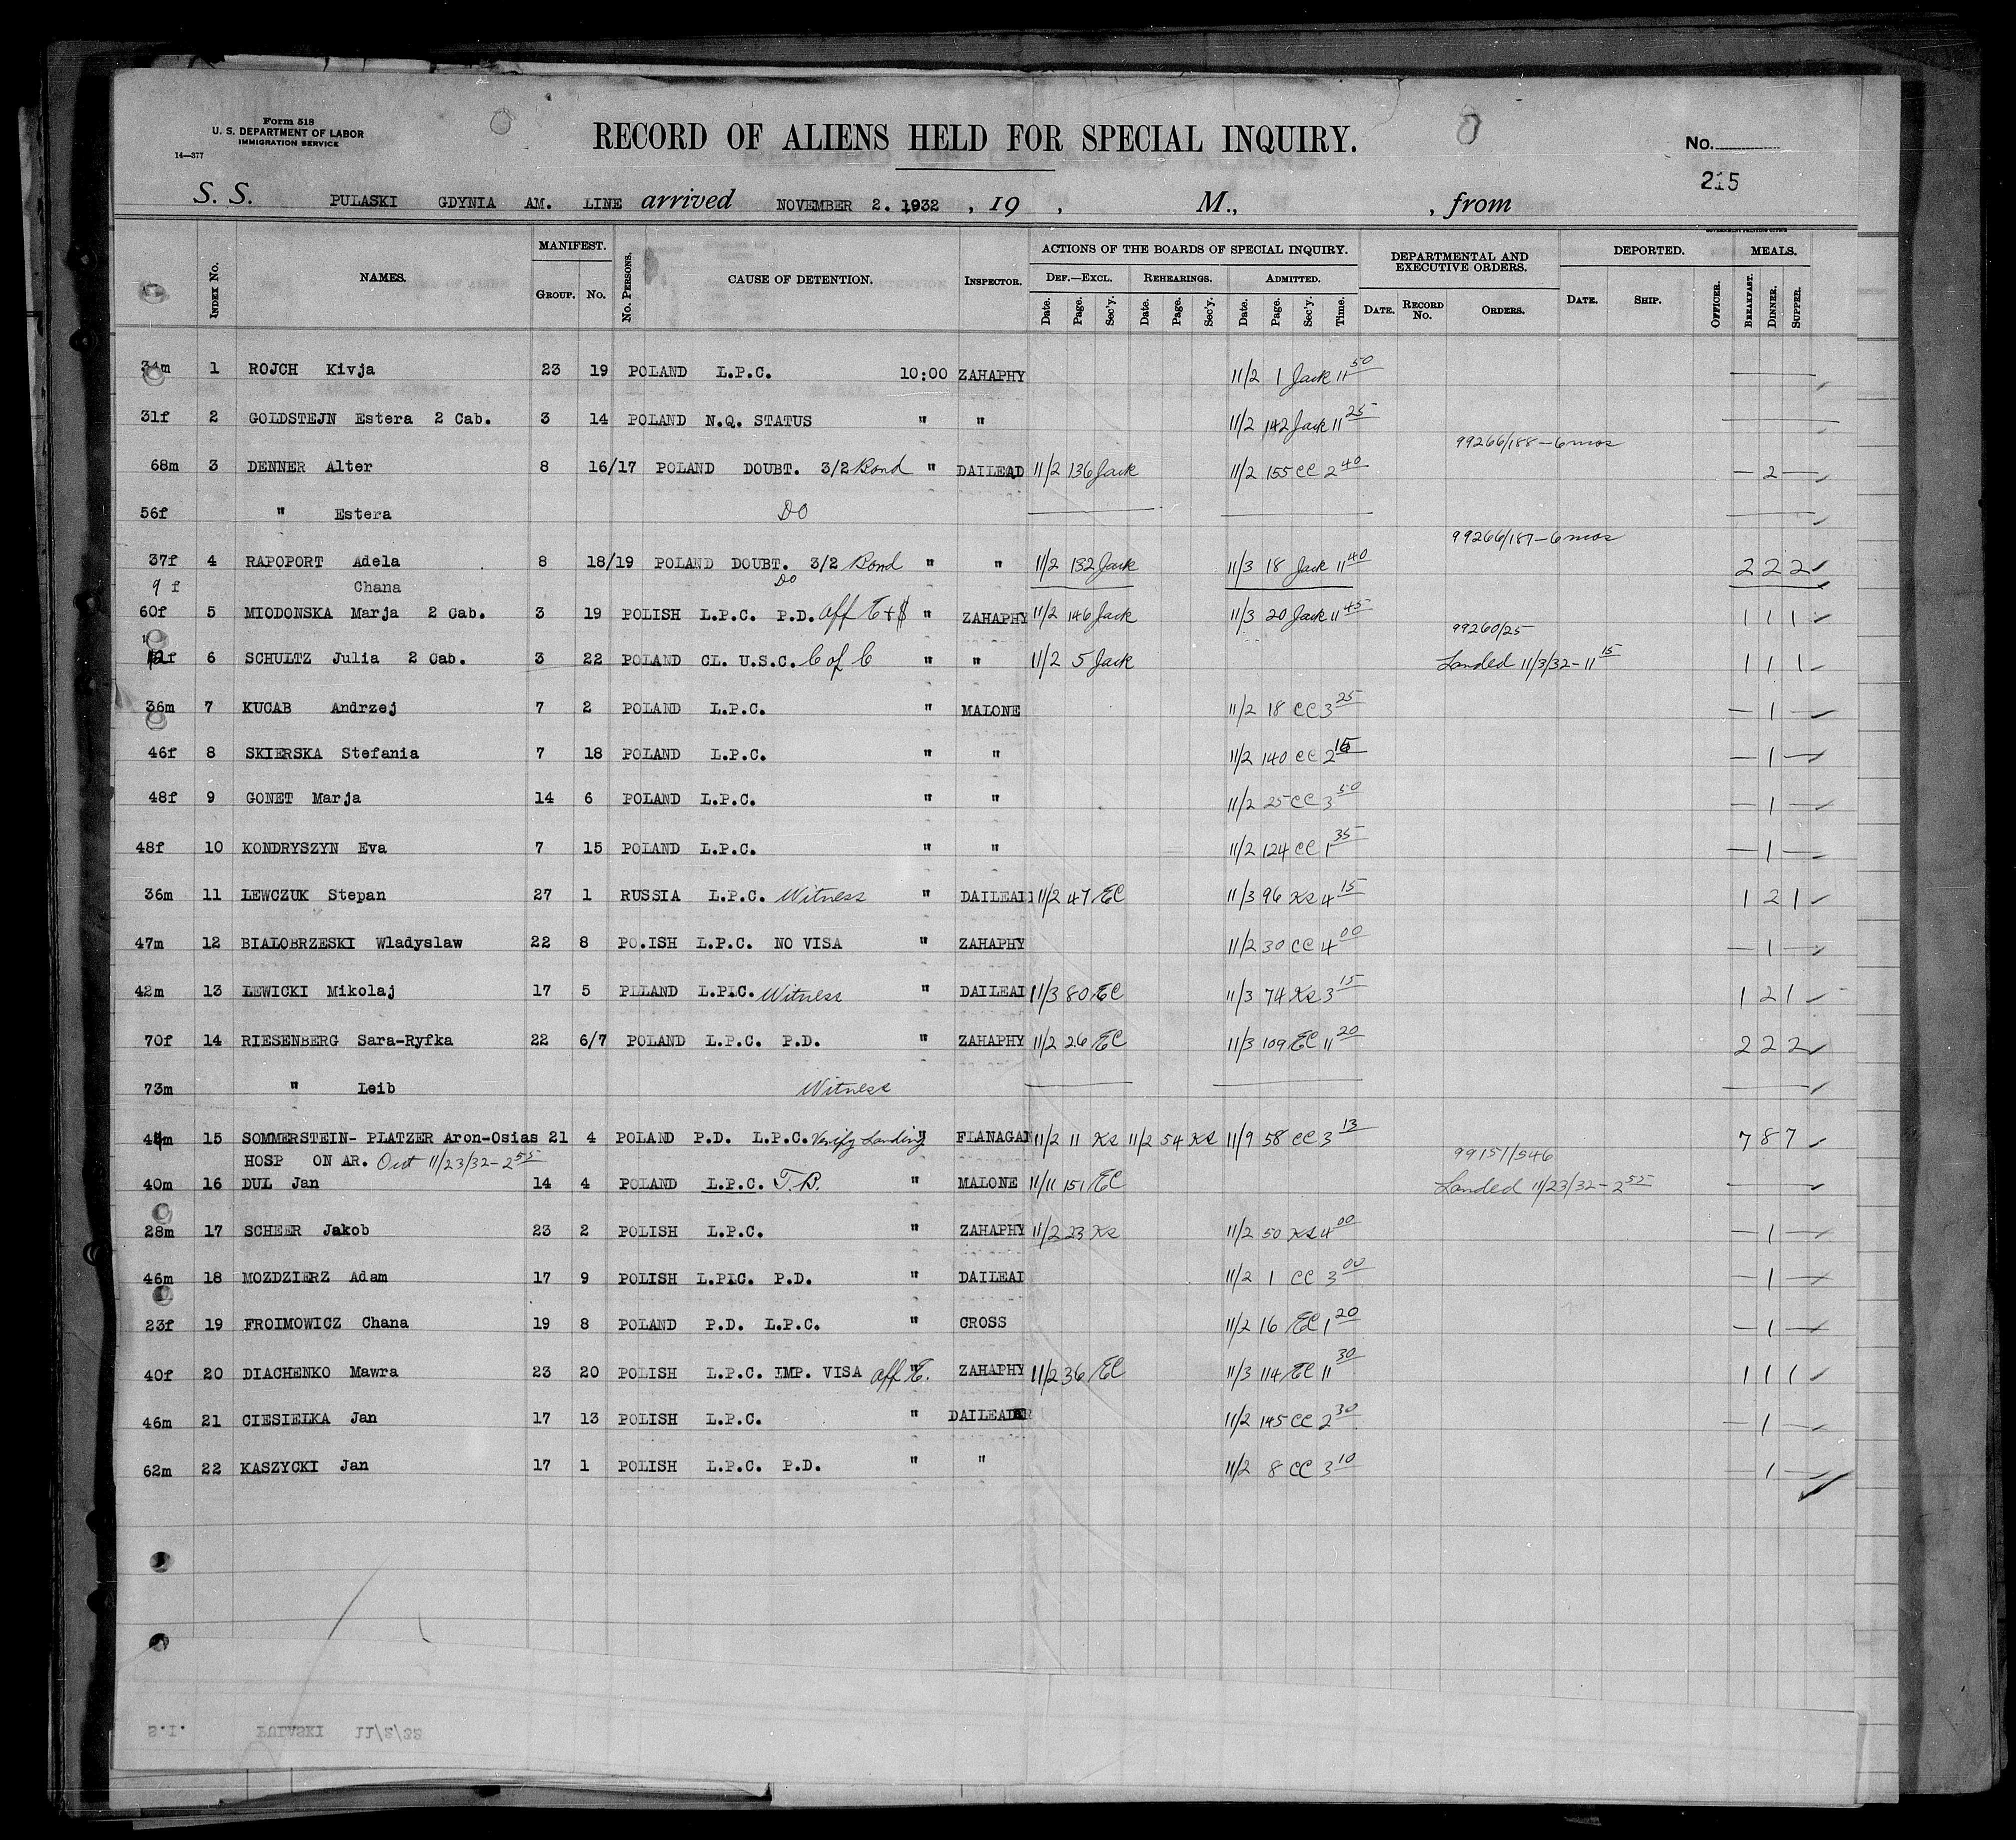 Form 518
U. S. DEPARTMENT OF LABOR
IMMIGRATION SERVICE
14—377
RECORD OF ALIENS HELD FOR SPECIAL INQUIRY.
No.
215
S. S. PULASKI GDYNIA AM. LINE arrived NOVEMBER 2. 1932 , 19 , M., , from
GOVERNMENT PRINTING OFFICE
INDEX No. NAMES. MANIFEST. GROUP. No. No. PERSONS. CAUSE OF DETENTION. INSPECTOR. ACTIONS OF THE BOARDS OF SPECIAL INQUIRY. DEPARTMENTAL AND EXECUTIVE ORDERS. DEPORTED. MEALS.
DEF.—EXCL. REHEARINGS. ADMITTED.
Date. Page. Sec'y. Date. Page. Sec'y. Date. Page. Sec'y. Time. DATE. RECORD No. ORDERS. DATE. SHIP. OFFICER. BREAKFAST. DINNER. SUPPER.
34m 1 ROJCH Kivja 23 19 POLAND L.P.C. 10:00 ZAHAPHY 11/2 1 Jack 11 50
31f 2 GOLDSTEJN Estera 2 Cab. 3 14 POLAND N.Q. STATUS " " 11/2 142 Jack 11 25
99266/188 - 6 mos
68m 3 DENNER Alter 8 16/17 POLAND DOUBT. 3/2 Bond " DAILEAD 11/2 136 Jack 11/2 155 CC 2 40 — 2 —
56f " Estera DO
99266/187 - 6 mos
37f 4 RAPOPORT Adela 8 18/19 POLAND DOUBT. 3/2 Bond " " 11/2 132 Jack 11/3 18 Jack 11 40 2 2 2
9 f Chana DO
60f 5 MIODONSKA Marja 2 Cab. 3 19 POLISH L.P.C. P.D. Aff T + $ " ZAHAPHY 11/2 146 Jack 11/3 20 Jack 11 45 1 1 1
99260/25
6 SCHULTZ Julia 2 Cab. 3 22 POLAND CL. U.S.C. C of C " " 11/2 5 Jack Landed 11/3/32 - 11 15 1 1 1
36m 7 KUCAB Andrzej 7 2 POLAND L.P.C. " MALONE 11/2 18 CC 3 25 — 1 —
46f 8 SKIERSKA Stefania 7 18 POLAND L.P.C. " " 11/2 140 CC 2 15 — 1 —
48f 9 GONET Marja 14 6 POLAND L.P.C. " " 11/2 25 CC 3 50 — 1 —
48f 10 KONDRYSZYN Eva 7 15 POLAND L.P.C. " " 11/2 124 CC 1 35 — 1 —
36m 11 LEWCZUK Stepan 27 1 RUSSIA L.P.C. Witness " DAILEAD 11/2 47 EC 11/3 96 KS 4 15 1 2 1
47m 12 BIALOBRZESKI Wladyslaw 22 8 PO.ISH L.P.C. NO VISA " ZAHAPHY 11/2 30 CC 4 00 — 1 —
42m 13 LEWICKI Mikolaj 17 5 PLLAND L.PIC. Witness " DAILEAD 11/3 80 EC 11/3 74 KS 3 15 1 2 1
70f 14 RIESENBERG Sara-Ryfka 22 6/7 POLAND L.P.C. P.D. " ZAHAPHY 11/2 26 EC 11/3 109 EC 11 20 2 2 2
73m " Leib Witness
15 SOMMERSTEIN- PLATZER Aron-Osias 21 4 POLAND P.D. L.P.C. Verify Landing " FLANAGAN 11/2 11 KS 11/2 54 KS 11/9 58 CC 3 13 7 8 7
HOSP ON AR. Out 11/23/32 - 2 55 99151/546
40m 16 DUL Jan 14 4 POLAND L.P.C. T.B. " MALONE 11/11 151 EC Landed 11/23/32 - 2 55
28m 17 SCHEER Jakob 23 2 POLISH L.P.C. " ZAHAPHY 11/2 23 KS 11/2 50 KS 4 00 — 1 —
46m 18 MOZDZIERZ Adam 17 9 POLISH L.PIC. P.D. " DAILEAD 11/2 1 CC 3 00 — 1 —
23f 19 FROIMOWICZ Chana 19 8 POLAND P.D. L.P.C. " CROSS 11/2 16 EC 1 20 — 1 —
40f 20 DIACHENKO Mawra 23 20 POLISH L.P.C. IMP. VISA Aff T. " ZAHAPHY 11/2 36 EC 11/3 114 EC 11 30 1 1 1
46m 21 CIESIELKA Jan 17 13 POLISH L.P.C. " DAILEADER 11/2 145 CC 2 30 — 1 —
62m 22 KASZYCKI Jan 17 1 POLISH L.P.C. P.D. " " 11/2 8 CC 3 10 — 1 —